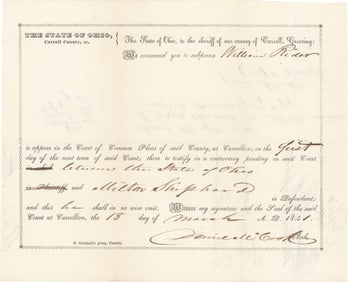 THE STATE OF OHIO,
Carroll County, ss.
The State of Ohio, to the sheriff of our county of Carroll, Greeting:
We command you to subpoena William Rider
to appear in the Court of Common Pleas of said County, at Carrollton, on the first
day of the next term of said Court; there to testify in a controversy pending in said Court
between the State of Ohio
is Plaintiff and Milton Shephard
is Defendant;
and this he shall in no wise omit. Witness my signature and the Seal of the said
Court at Carrollton, the 18 day of March A. D. 1841.
Daniel McCook Clerk
print, Canton.